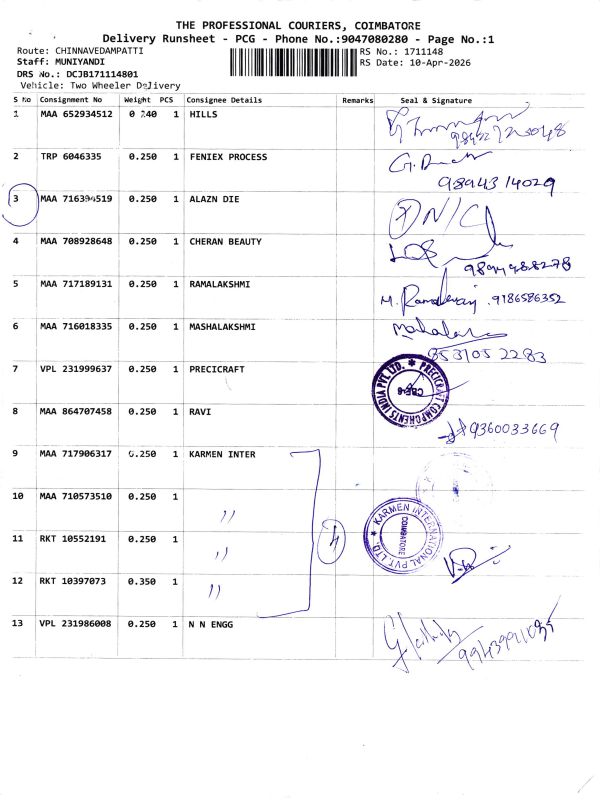 THE PROFESSIONAL COURIERS, COIMBATORE
Delivery Runsheet - PCG - Phone No.:9047080280 - Page No.:1
Route: CHINNAVEDAMPATTI RS No.: 1711148
Staff: MUNIYANDI RS Date: 10-Apr-2026
DRS No.: DCJB171114801
Vehicle: Two Wheeler Delivery
S No Consignment No Weight PCS Consignee Details Remarks Seal & Signature
1 MAA 652934512 1 HILLS
2 TRP 6046335 0.250 1 FENIEX PROCESS
9894314029
3 MAA 716394519 0.250 1 ALAZN DIE
4 MAA 708928648 0.250 1 CHERAN BEAUTY
5 MAA 717189131 0.250 1 RAMALAKSHMI
9186586352
6 MAA 716018335 0.250 1 MASHALAKSHMI
8531052283
7 VPL 231999637 0.250 1 PRECICRAFT
PRECICRAFT COMPONENTS INDIA PVT. LTD.
8 MAA 864707458 0.250 1 RAVI
9360033669
9 MAA 717906317 0.250 1 KARMEN INTER
10 MAA 710573510 0.250 1 〃
11 RKT 10552191 0.250 1 〃 4
KARMEN INTERNATIONAL PVT. LTD.
COIMBATORE
12 RKT 10397073 0.350 1 〃
13 VPL 231986008 0.250 1 N N ENGG